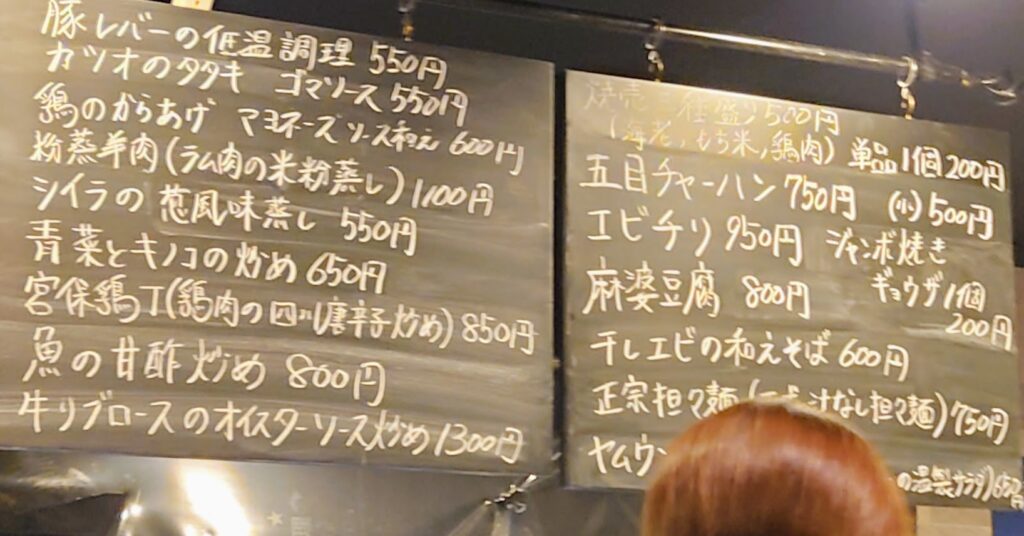 豚レバーの低温調理 550円
カツオのタタキ ゴマソース 550円
鶏のからあげ マヨネーズソース和え 600円
粉蒸羊肉(ラム肉の米粉蒸し) 1100円
シイラの葱風味蒸し 550円
青菜とキノコの炒め 650円
宮保鶏丁(鶏肉の四川唐辛子炒め) 850円
魚の甘酢炒め 800円
牛リブロースのオイスターソース炒め 1300円
焼売三種盛り 500円
(海老,もち米,鶏肉) 単品1個200円
五目チャーハン 750円 (小) 500円
エビチリ 950円 ジャンボ焼き
麻婆豆腐 800円 ギョウザ1個
200円
干しエビの和えそば 600円
正宗担々麺 汁なし担々麺) 750円
ヤムウ
の温製サラダ)